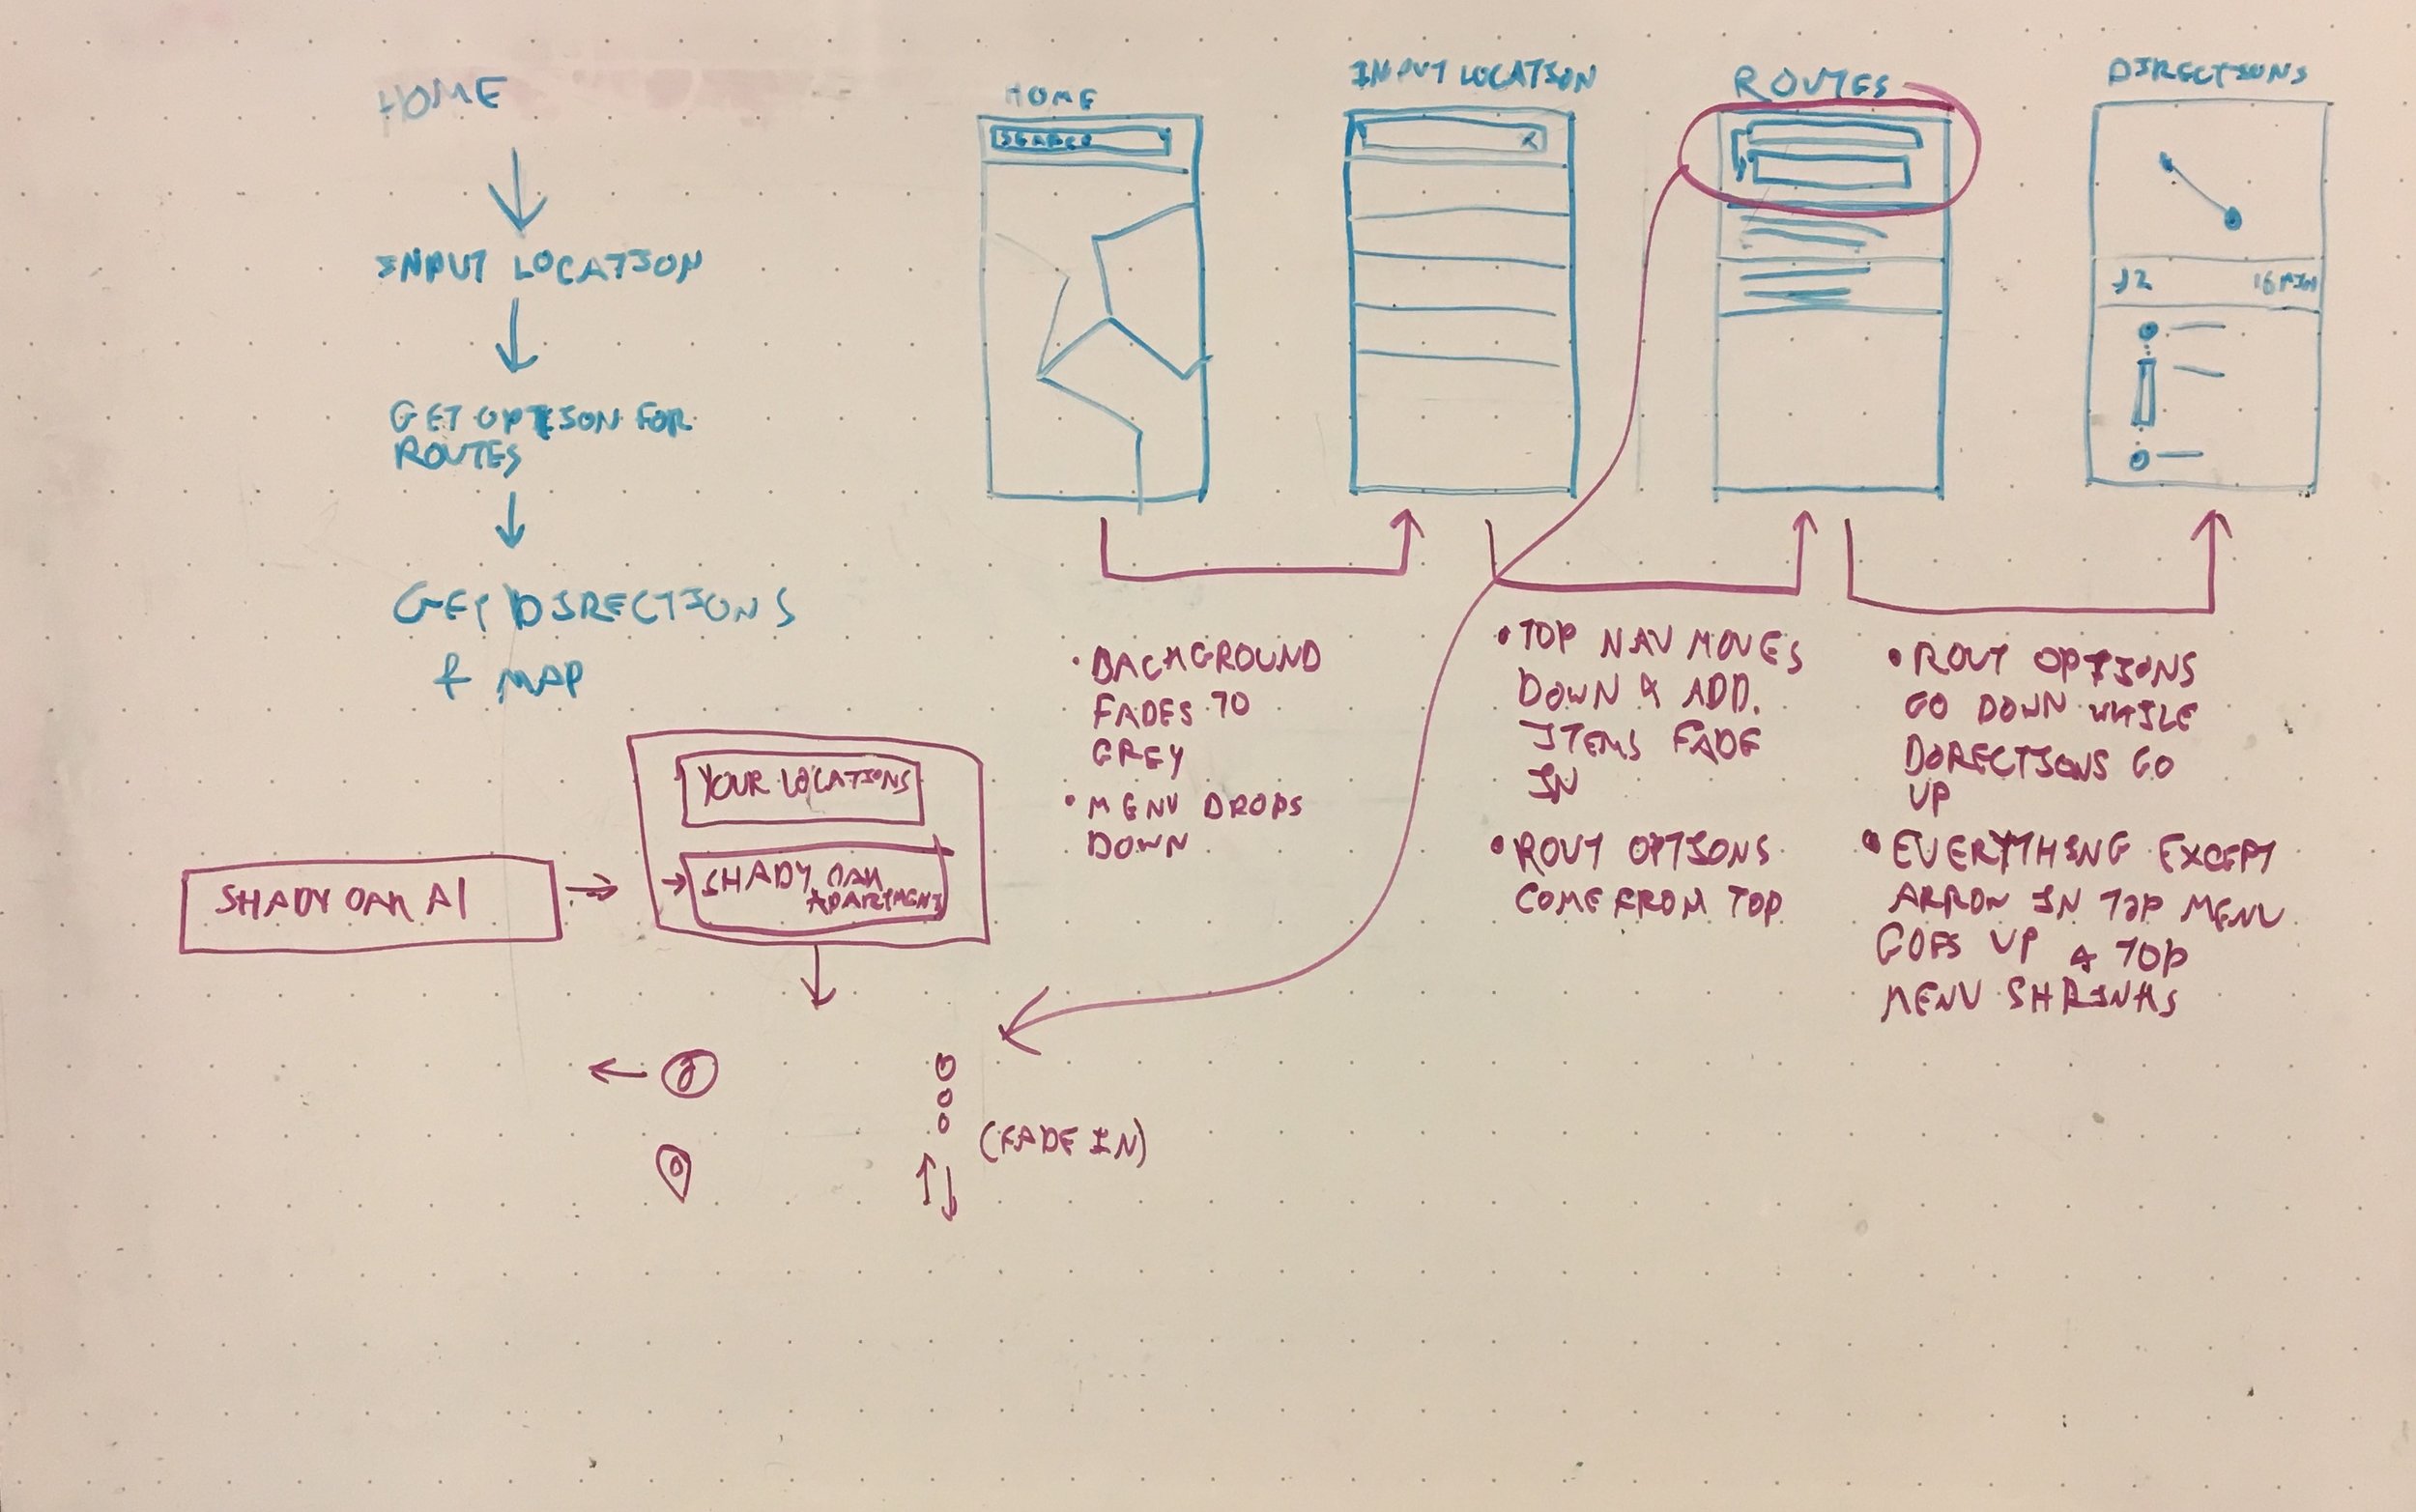 HOME
INPUT LOCATION
GET OPTION FOR
ROUTES
GET DIRECTIONS
& MAP
HOME
SEARCH
INPUT LOCATION
X
ROUTES
DIRECTIONS
12
16 MIN
• BACKGROUND
FADES TO
GREY
• MENU DROPS
DOWN
• TOP NAV MOVES
DOWN & ADD.
ITEMS FADE
IN
• ROUT OPTIONS
COME FROM TOP
• ROUT OPTIONS
GO DOWN WHILE
DORECTIONS GO
UP
• EVERYTHING EXCEPT
ARROW IN TOP MENU
GOES UP & TOP
MENU SHRINKS
SHADY OAK A|
YOUR LOCATIONS
SHADY OAK
APARTMENT
(FADE IN)